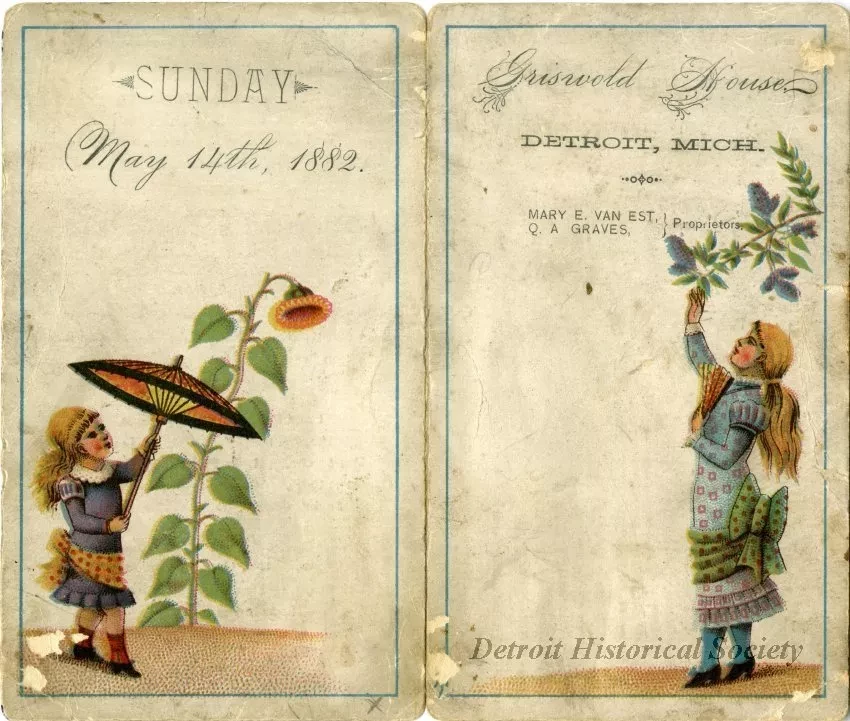 SUNDAY
May 14th, 1882.
Griswold House
DETROIT, MICH.
MARY E. VAN EST,
Q. A GRAVES,
} Proprietors.
Detroit Historical Society